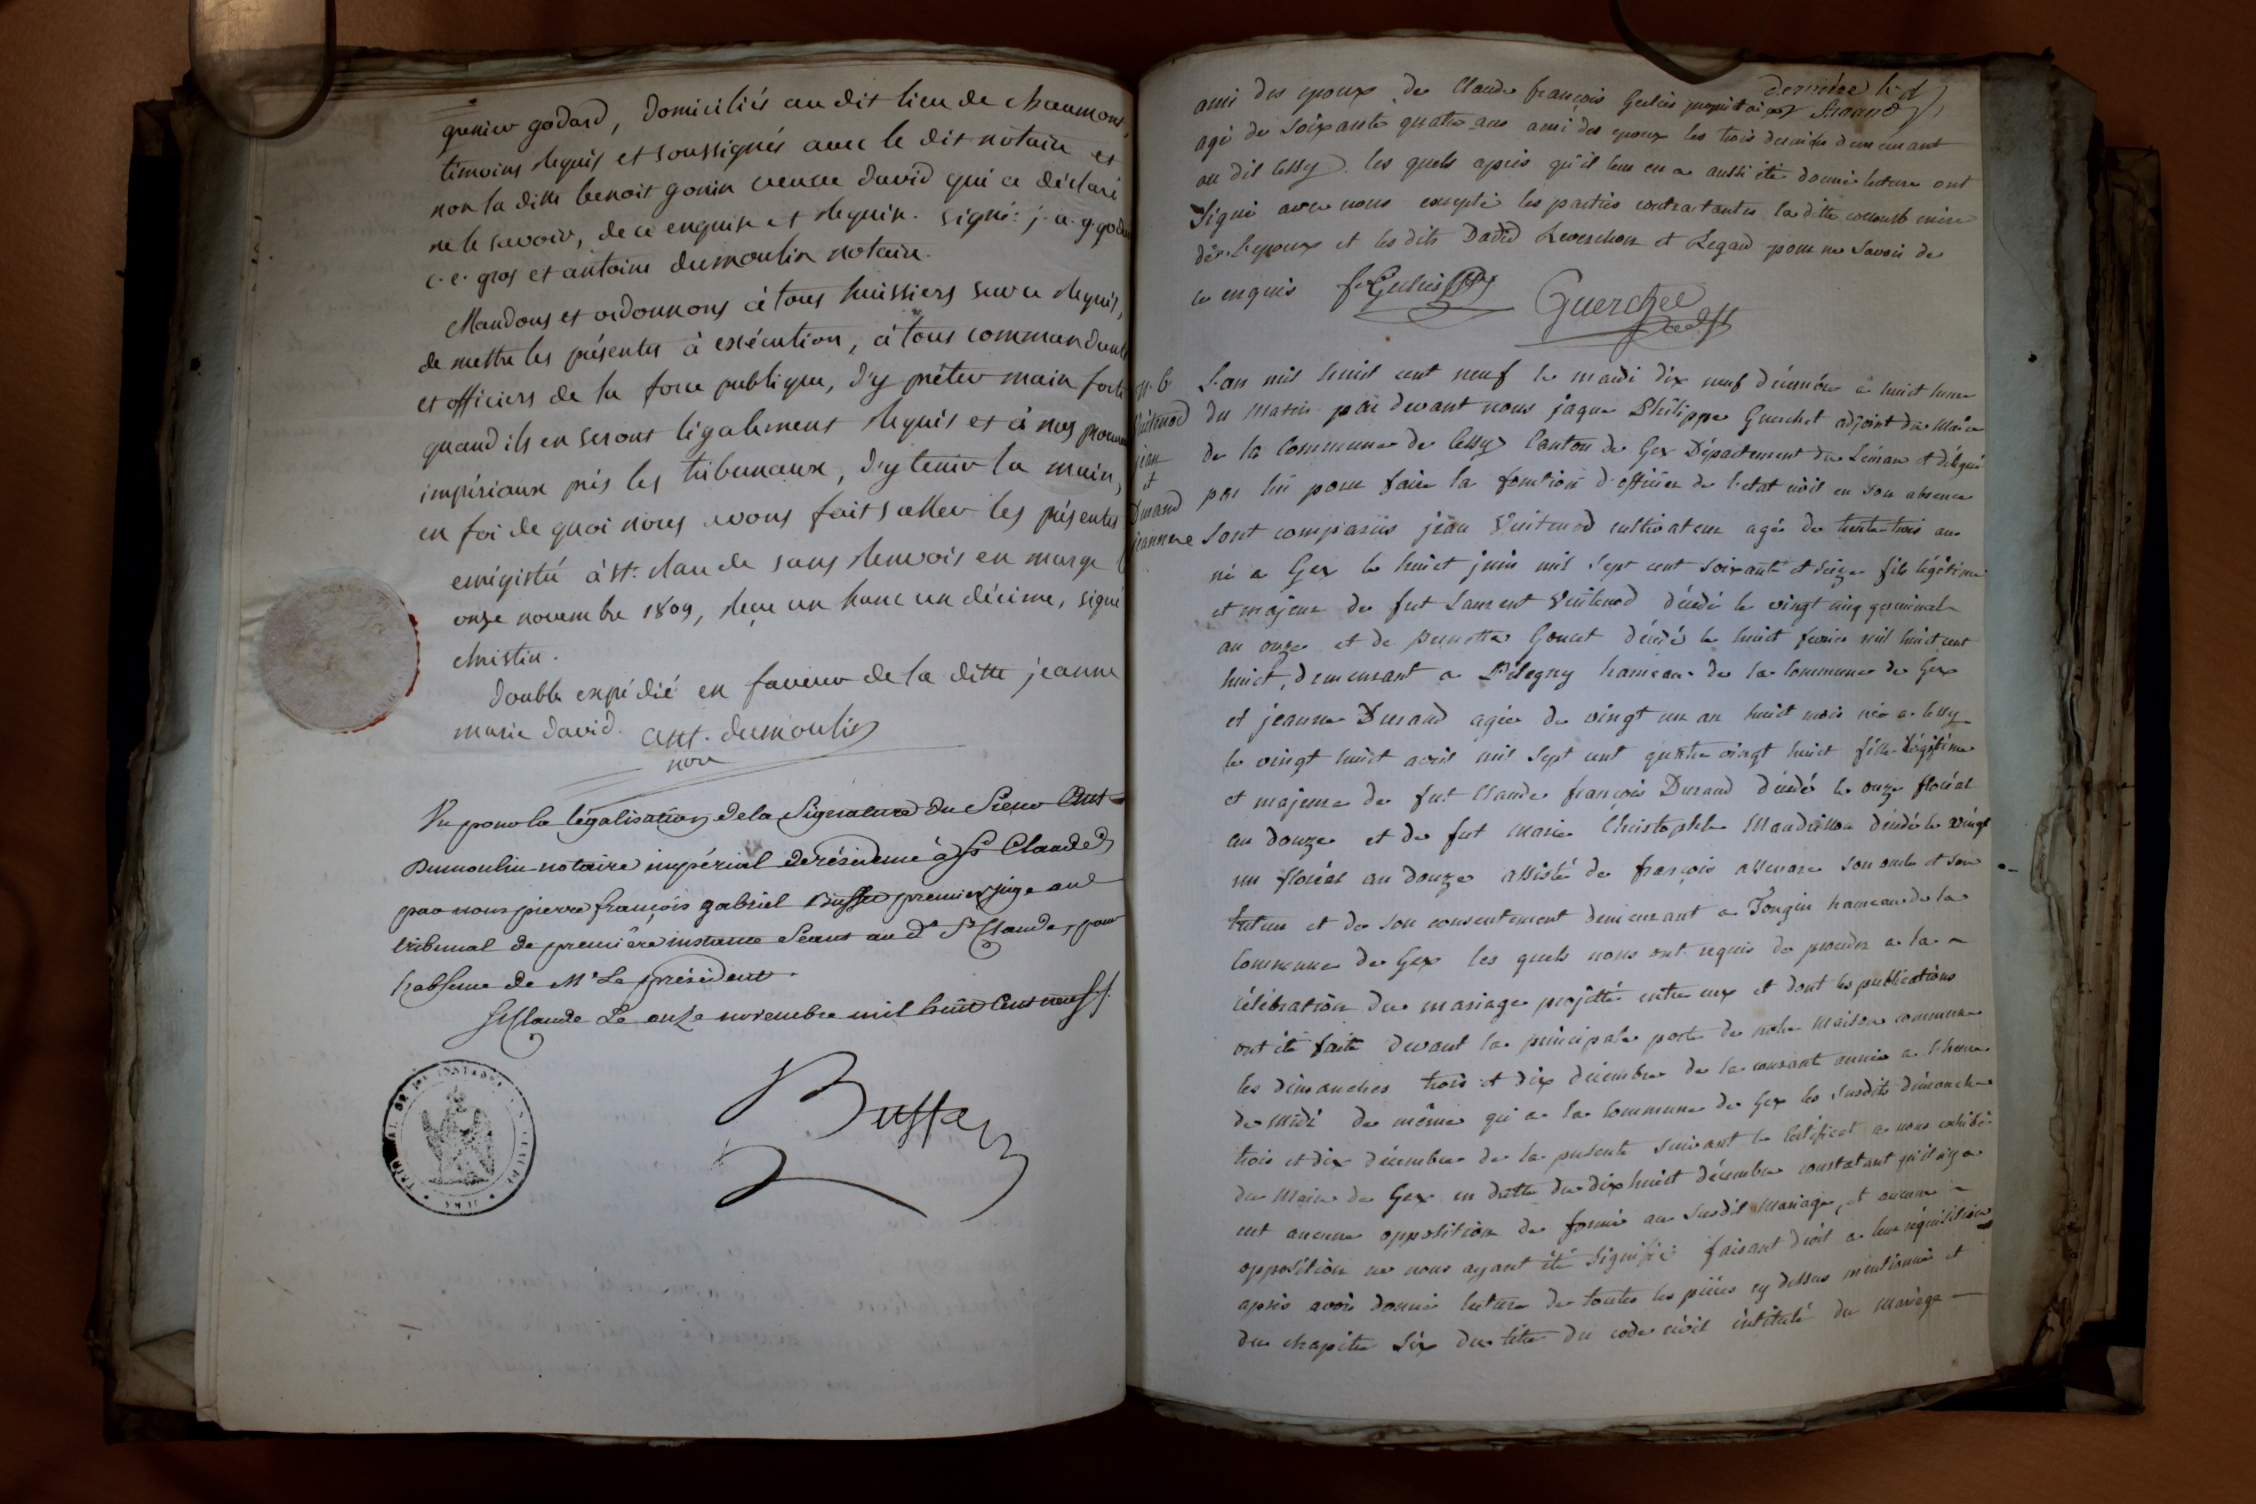 grenier godard, domiciliés au dit lieu de chaumont,
témoins requis et soussignés avec le dit notaire et
non la ditte benoit gonin veuve david qui a déclaré
ne le savoir, de ce enquise et requise. signé: j. a. g. godard
c. e. gros et antoine dumoulin notaire.
Mandons et ordonnons à tous huissiers sur ce requis,
de mettre les présentes à exécution, à tous commandants
et officiers de la force publique, d'y prêter main forte
quand ils en seront légalement requis et à nos procureurs
impériaux près les tribunaux, d'y tenir la main,
en foi de quoi nous avons fait sceller les présentes
enrégistré à st. claude sans renvois en marge
onze novembre 1809, reçu un franc un décime, signé
christin.
double expédié en faveur de la ditte jeanne
marie david. ant. dumoulin
nore
Vu pour la légalisation de la Signature du Sieur Ant
Dumoulin notaire impérial de résidence à St Claude
par nous pierre françois gabriel premier juge au
tribunal de première instance Séant au dt St Claude, pour
l'absence de Mr Le président.
St Claude Le onze novembre mil huit Cent neuf.
ami des epoux de Claude françois Gulin propriétaire
agé de soixante quatre ans ami des epoux les trois derniers demeurant
au dit Cessy. les quels après qu'il leur en a aussi été donné lecture ont
signé avec nous excepté les parties contractantes la ditte mère
de l'epoux et les dits David et Legard pour ne savoir de
ce enquis Guerchet
n. 6
Vuitenod
jean
et
Durand
jeanne
L'an mil huit cent neuf le mardi dix neuf décembre à huict heure
du Matin par devant nous jaque Philippe Guerchet adjoint du Maire
de la Commune de Cessy Canton de Gex Département du Léman et délégué
par lui pour faire la fonction d'officier de l'etat civil en son absence
sont comparus jean Vuitenod cultivateur agé de trente trois ans
né a Gex le huict juin mil sept cent soixante et seize fils légitime
et majeur de fut Laurent Vuitenod décédé le vingt cinq germinal
an onze et de pernette Goncet décédé le huict fevrier mil huict cent
huict, demeurant a Pitegny hameau de la Commune de Gex
et jeanne Durand agée de vingt un an huict mois née a Cessy
le vingt huict avril mil sept cent quatre vingt huict fille légitime
et majeure de fut Claude françois Durand décédé le onze floréal
an douze et de fut Marie Christophle Mandrillon décédé le vingt
un floréal an douze assisté de françois son oncle et son
tuteur et de son consentement demeurant a Tougin hameau de la
Commune de Gex les quels nous ont requis de proceder a la
célébration du mariage projetté entre eux et dont les publications
ont été faite devant la principale porte de notre Maison commune
les dimanches trois et dix décembre de la courant année a l'heure
de midi de même qu'a la Commune de Gex les susdits dimanche
trois et dix décembre de la présente suivant le certificat a nous exhibé
du Maire de Gex en datte du dix huict décembre constatant qu'il n'y a
eut aucune opposition de formé au susdit Mariage, et aucune
opposition ne nous ayant été signifié faisant droit a leur réquisition
après avoir donné lecture de toutes les pièces cy dessus mentionné et
du chapitre six du titre du code civil intitulé du Mariage